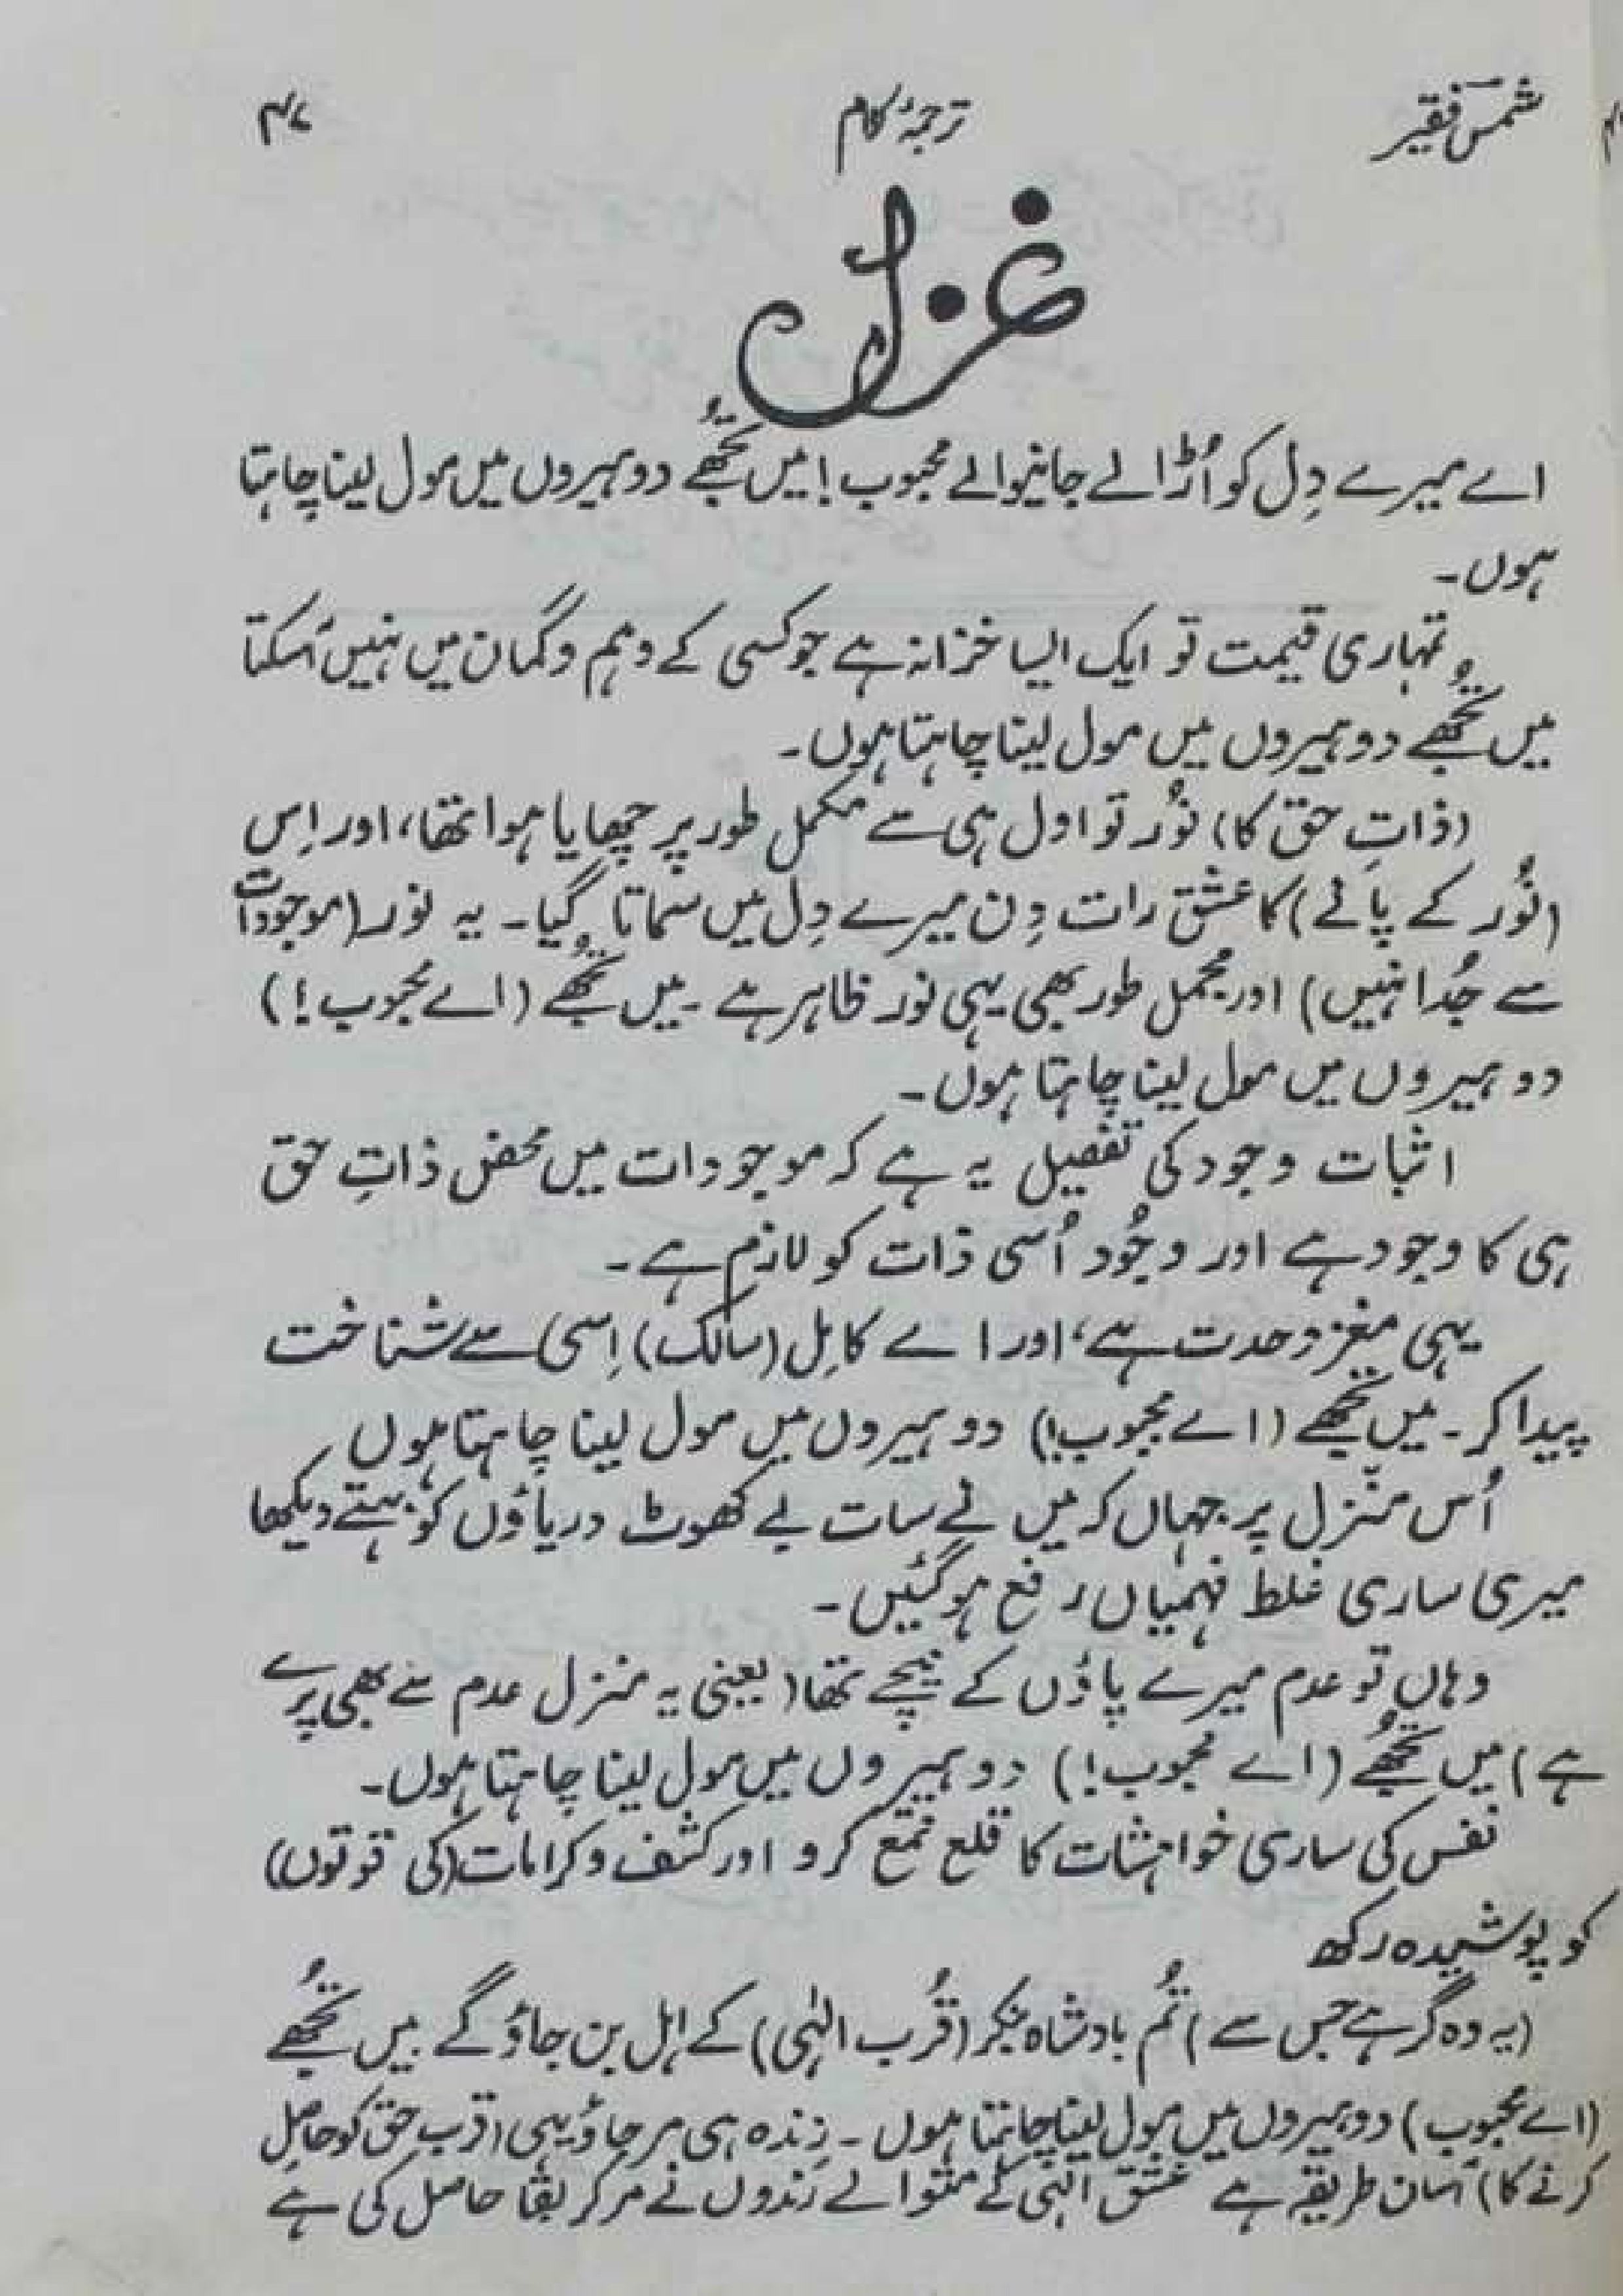 شمس فقیر
ترجمۂ کلام
۴۷
غزل
اے میرے دِل کو اُڑا لے جانیوالے محبوب! میں تُجھے دو ہیروں میں مول لینا چاہتا
ہوں۔
تمہاری قیمت تو ایک ایسا خزانہ ہے جو کسی کے وہم و گمان میں نہیں آسکتا
میں تُجھے دو ہیروں میں مول لینا چاہتا ہوں۔
(ذاتِ حق کا) نوُر تو اول ہی سے مکمل طور پر چھپایا ہوا تھا، اور اِس
(نوُر کے پانے) کا عشق رات دِن میرے دِل میں سماتا گیا۔ یہ نور (موجودات
سے جُدا نہیں) اور مجمل طور بھی یہی نور ظاہر ہے۔ میں تُجھے (اے محبوب!)
دو ہیروں میں مول لینا چاہتا ہوں۔
اثبات وجود کی تفصیل یہ ہے کہ موجودات میں محض ذاتِ حق
ہی کا وجود ہے اور وجُود اُسی ذات کو لازم ہے۔
یہی مغز وحدت ہے، اور اے کامِل (سالک) اِسی سے شناخت
پیدا کر۔ میں تجھے (اے محبوب!) دو ہیروں میں مول لینا چاہتا ہوں
اُس منّزل پر جہاں کہ میں نے سات بے کھوٹ دریاؤں کو بہتے دیکھا
میری ساری غلط فہمیاں رفع ہوگئیں۔
وہاں تو عدم میرے پاؤں کے نیچے تھا (یعنی یہ منزل عدم سے بھی پرے
ہے) میں تُجھے (اے محبوب!) دو ہیروں میں مول لینا چاہتا ہوں۔
نفس کی ساری خواہشات کا قلع قمع کرو اور کشف و کرامات (کی قوتوں)
کو پوشیدہ رکھ
(یہ وہ گر ہے جس سے) تُم بادشاہ بنکر (قُرب الہٰی) کے اہل بن جاؤ گے میں تُجھے
(اے محبوب) دو ہیروں میں مول لینا چاہتا ہوں۔ زِندہ ہی مر جاؤ یہی (قرب حق کو حاصِل
کرنے کا) آسان طریقہ ہے عشق الہٰی کے متوالے رندوں نے مر کر بقا حاصل کی ہے